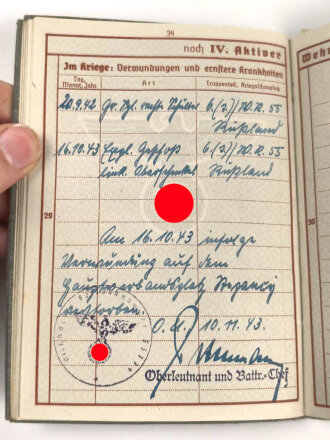 34
noch IV. Aktiver
Im Kriege: Verwundungen und ernstere Krankheiten
Tag, Monat, Jahr
Art
Truppenteil, Kriegsschauplatz
20.9.42 Gr. Spl. recht. Schulter 6.(J.)/W.R. 55
Rußland
16.10.43 Expl. Geschoß 6.(J.)/W.R. 55
link. Oberschenkel Rußland
29
Am 16.10.43 infolge
Verwundung auf dem
Hauptverbandplatz
verstorben.
O.U. 10.11.43.
Oberleutnant und Battr.-Chef
Wehr
30